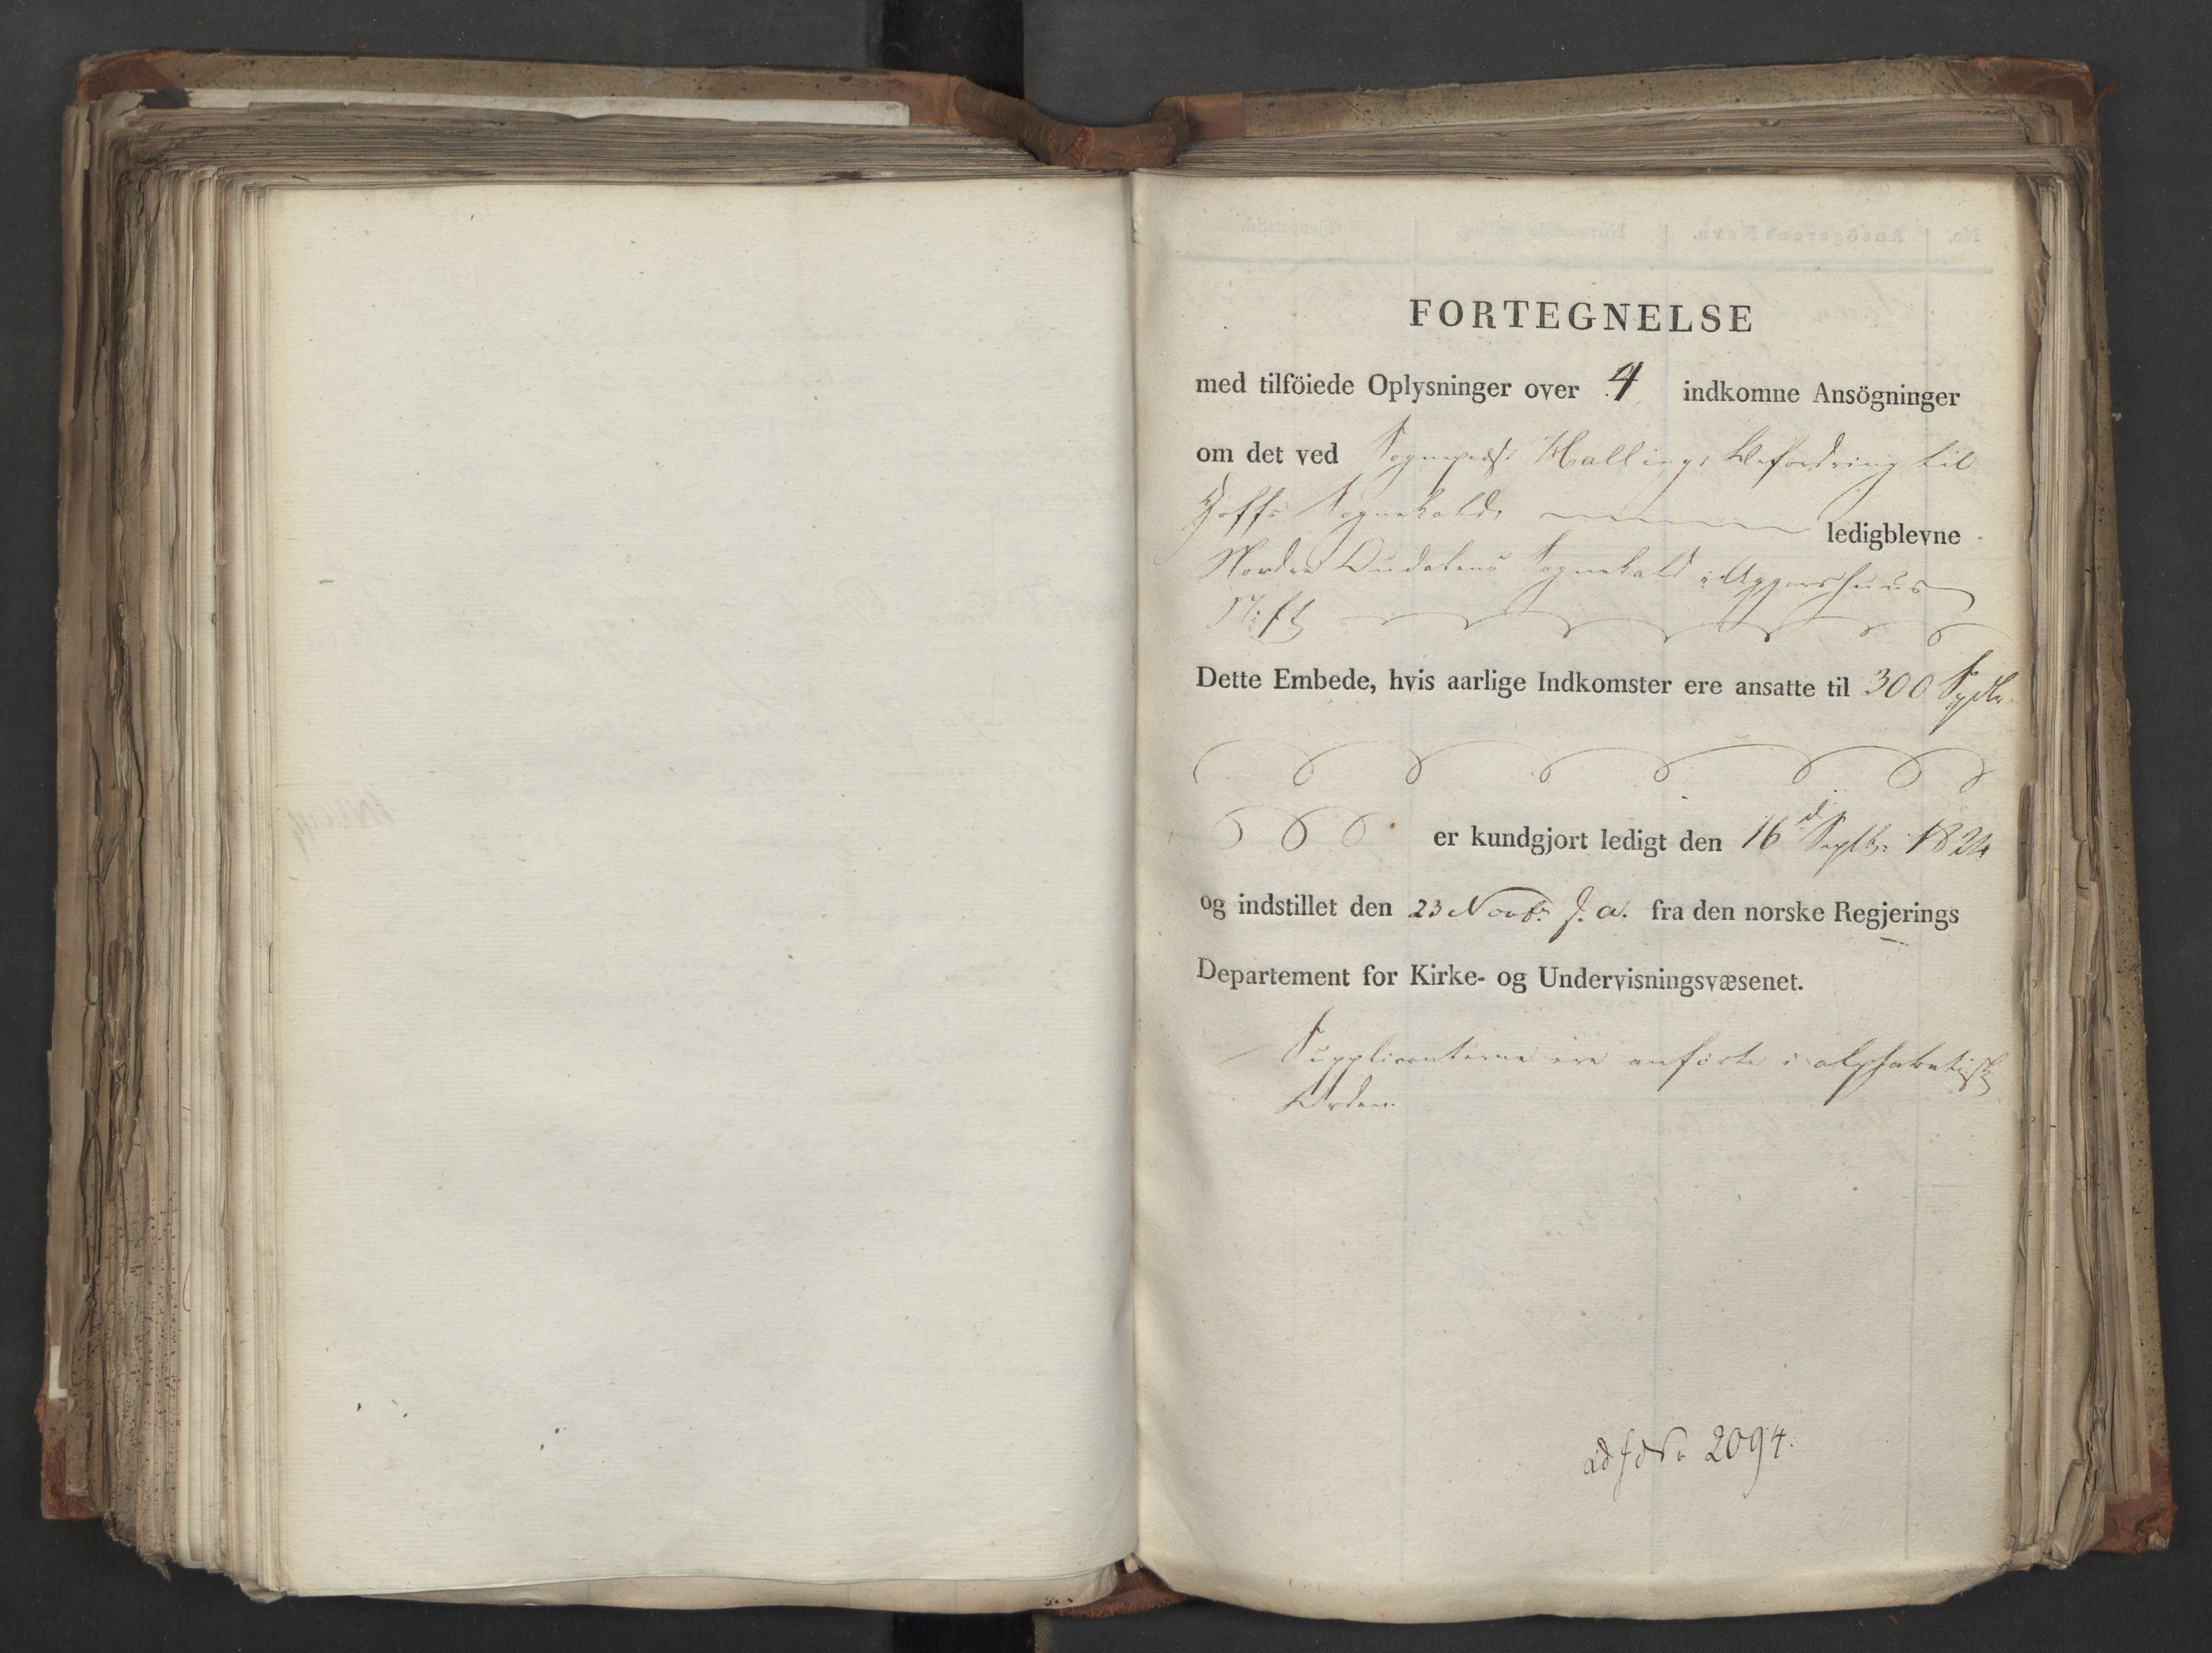 FORTEGNELSE
med tilföiede Oplysninger over 4 indkomne Ansögninger
om det ved Sognepræst Hallings Befordring til
Hoffs Sognekald ledigblevne
Nordre Oudalens Sognekald i Aggershuus
Stift
Dette Embede, hvis aarlige Indkomster ere ansatte til 300 Spdlr.
er kundgjort ledigt den 16d Septbr: 1824
og indstillet den 23 Novbr f. a. fra den norske Regjerings
Departement for Kirke- og Undervisningsvæsenet.
Supplicanterne ere anförte i alphabetisk
Orden.
2094.